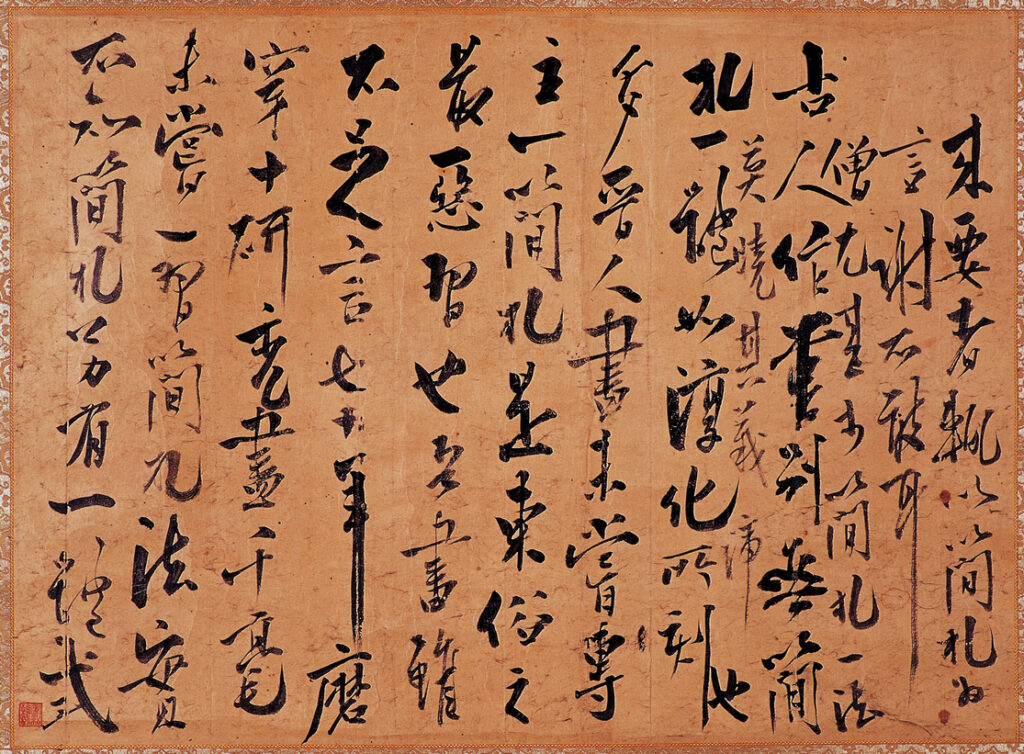 古人作書別無簡
札一體如淳化所刻也
多晉人書未嘗專
主一簡札是東俗之
最惡習也吾書雖
不足言七十年磨
穿十硏禿盡千毫
未嘗一習簡札法實
不知簡札另有一體式
來要者輒以簡札爲
言謝不敢耳
僧尤甚於簡札一法
莫曉其義諦